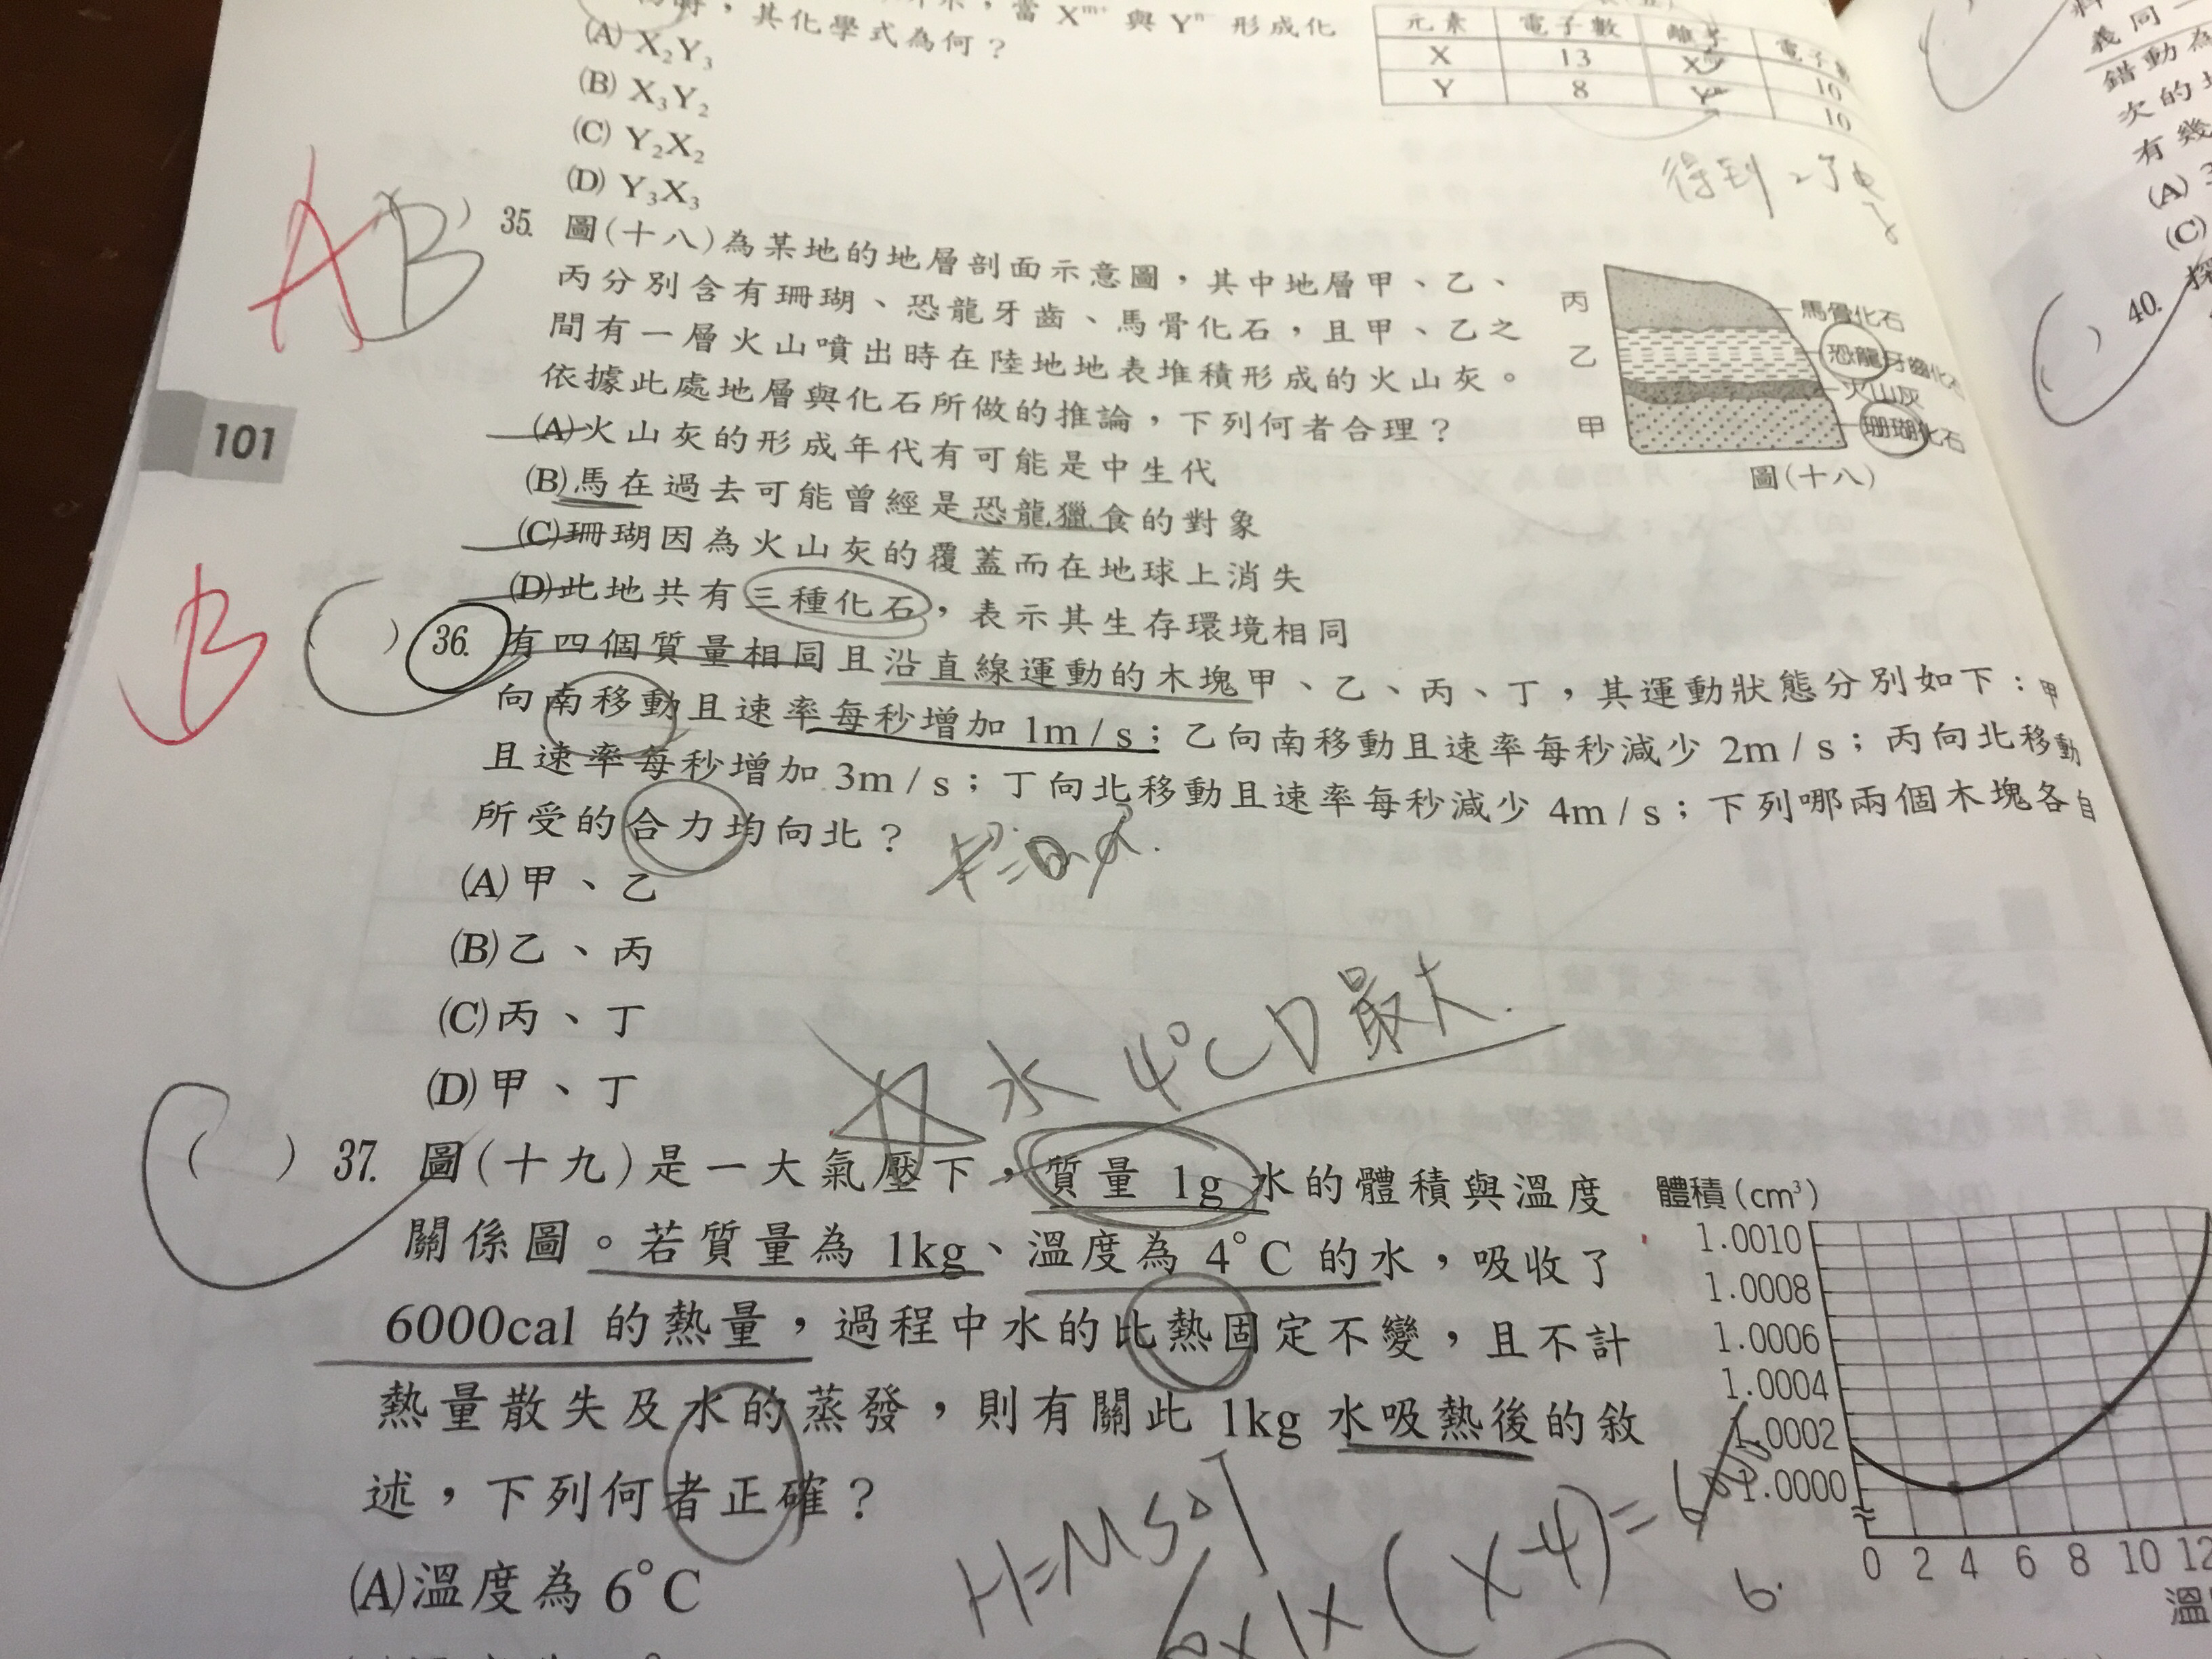 其化學式為何？
當 Xᵐ⁺ 與 Yⁿ⁻ 形成化
(A) X₂Y₃
(B) X₃Y₂
(C) Y₂X₂
(D) Y₃X₃
元素 電子數 離子 電子數
X 13 10
Y 8 10
得到
AB
35. 圖(十八)為某地的地層剖面示意圖，其中地層甲、乙、
丙分別含有珊瑚、恐龍牙齒、馬骨化石，且甲、乙之
間有一層火山噴出時在陸地地表堆積形成的火山灰。
依據此處地層與化石所做的推論，下列何者合理？
(A)火山灰的形成年代有可能是中生代
(B)馬在過去可能曾經是恐龍獵食的對象
(C)珊瑚因為火山灰的覆蓋而在地球上消失
(D)此地共有三種化石，表示其生存環境相同
丙
乙
甲
馬骨化石
恐龍牙齒化石
火山灰
珊瑚化石
圖(十八)
101
B
( ) 36. 有四個質量相同且沿直線運動的木塊甲、乙、丙、丁，其運動狀態分別如下：甲
向南移動且速率每秒增加 1m / s；乙向南移動且速率每秒減少 2m / s；丙向北移動
且速率每秒增加 3m / s；丁向北移動且速率每秒減少 4m / s；下列哪兩個木塊各自
所受的合力均向北？
(A)甲、乙
(B)乙、丙
(C)丙、丁
(D)甲、丁
水 4°C D 最大.
( ) 37. 圖(十九)是一大氣壓下，質量 1g 水的體積與溫度
關係圖。若質量為 1kg、溫度為 4°C 的水，吸收了
6000cal 的熱量，過程中水的比熱固定不變，且不計
熱量散失及水的蒸發，則有關此 1kg 水吸熱後的敘
述，下列何者正確？
(A)溫度為 6°C
體積(cm³)
1.0010
1.0008
1.0006
1.0004
1.0002
1.0000
0 2 4 6 8 10 12
H=MS△T
×1×(X-4)=
6.
義同
錯動為
次的
有幾
(A)
(C)
40.